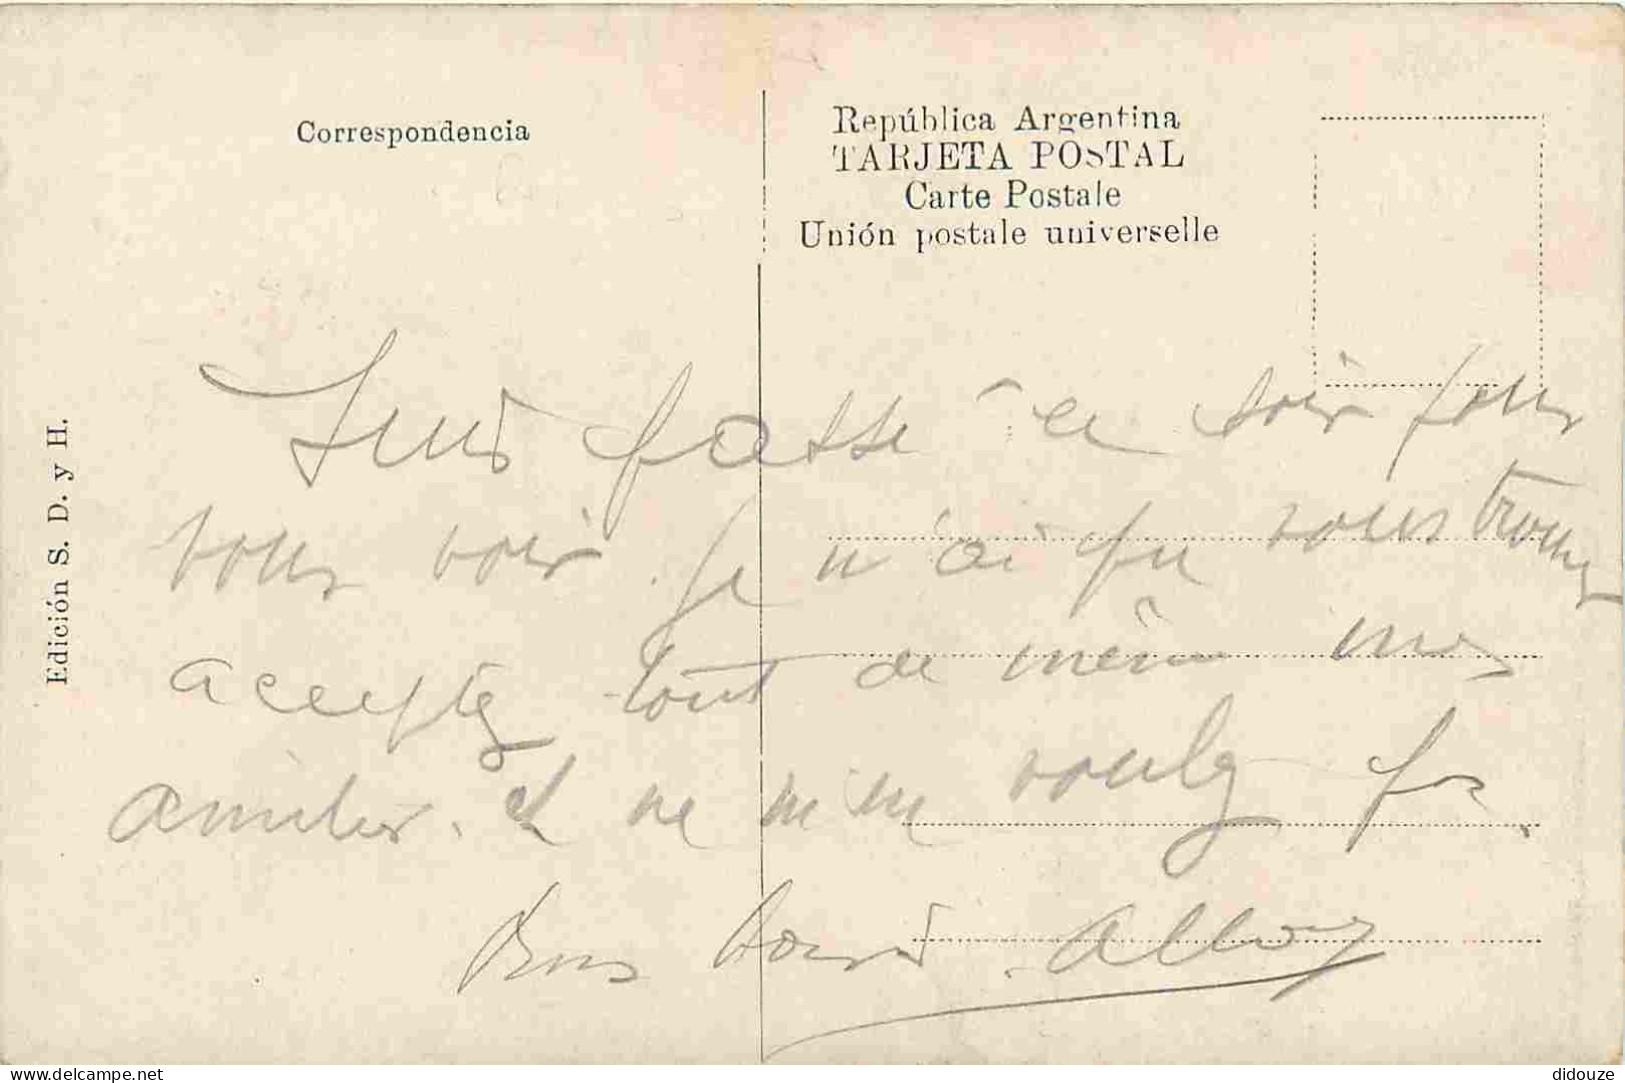 Correspondencia
República Argentina
TARJETA POSTAL
Carte Postale
Unión postale universelle
Edición S. D. y H.
Suis passé ce soir pour
vous voir. Je n'ai pu vous trouver
acceptez tout de même mes
amitiés. et ne m'en voulez pas.
Bien
delcampe.net
didouze